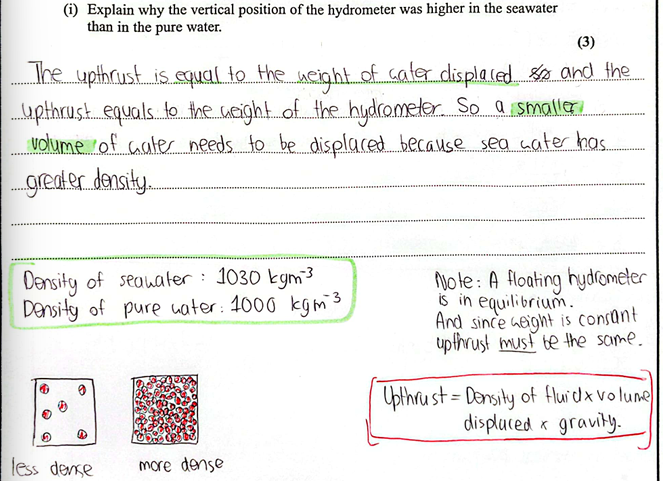 (i) Explain why the vertical position of the hydrometer was higher in the seawater
than in the pure water.
(3)
The upthrust is equal to the weight of water displaced and the
upthrust equals to the weight of the hydrometer. So a smaller
volume of water needs to be displaced because sea water has
greater density.
Density of seawater : 1030 kgm⁻³
Density of pure water : 1000 kgm⁻³
Note: A floating hydrometer
is in equilibrium.
And since weight is consant
upthrust must be the same.
Upthrust = Density of fluid x volume
displaced x gravity.
less dense
more dense